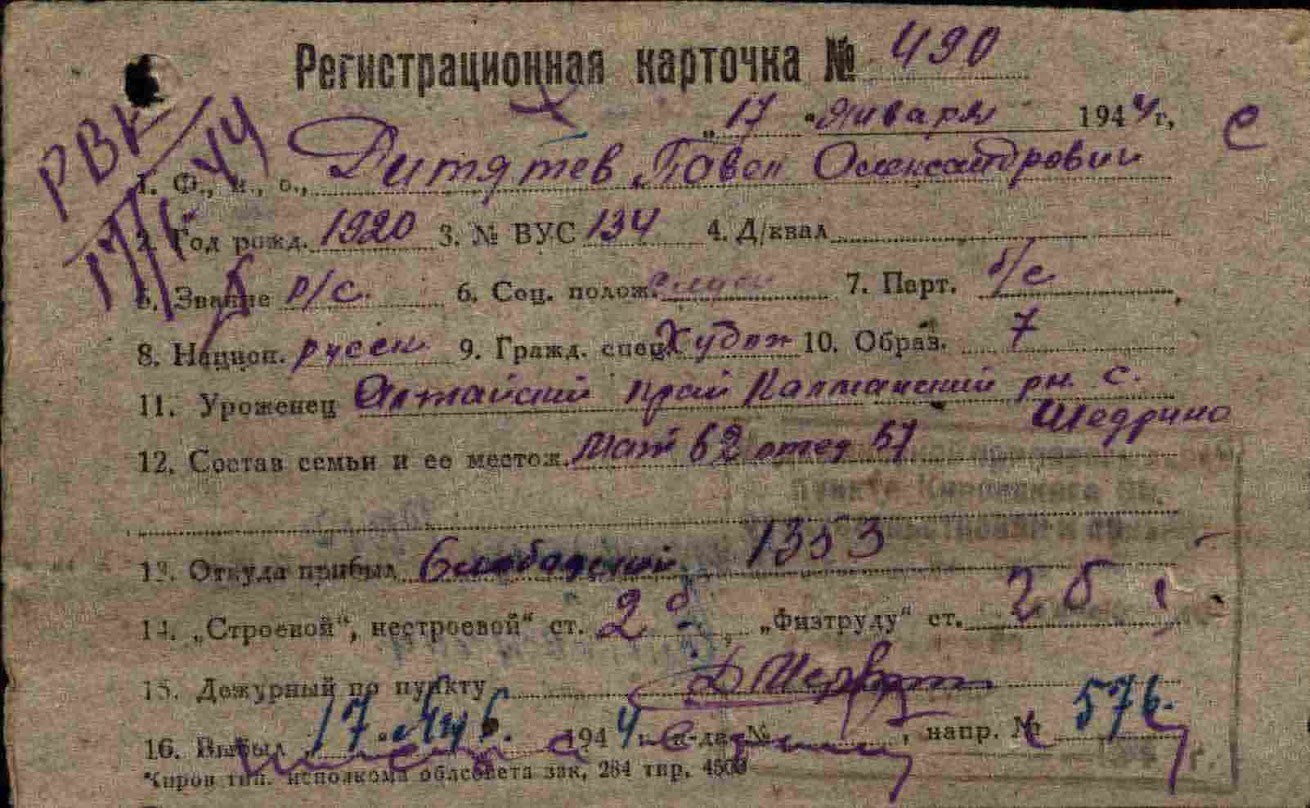 Регистрационная карточка № 490
"17" января 1944 г.
е
РВК
17/I-44
1. Ф., и., о., Дитятев Павел Олександрович
2. Год рожд. 1920 3. № ВУС 134 4. Д/квал
5. Звание р/с. 6. Соц. полож. 7. Парт. б/с
8. Национ. русск 9. Гражд. спец. Худож 10. Образ. 7
11. Уроженец Алтайский край Калманский рн. с.
Шедрино
12. Состав семьи и ее местож. Мат 62 отец 57
пункта Кировского
13. Откуда прибыл Слободской 1353
14. „Строевой", нестроевой" ст. 2 б, „Физтруду" ст. 2 б
15. Дежурный по пункту
16. Выбыл 17 Янв. 1944 к-да № , напр. № 576.
Киров тип. исполкома облсовета зак. 284 тир. 4500